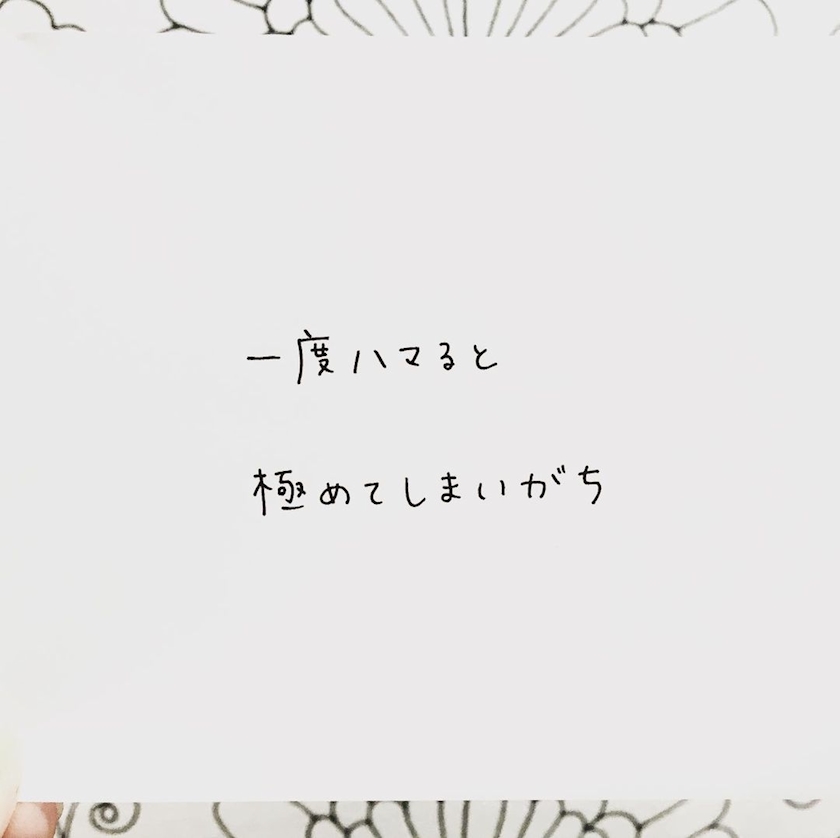 一度ハマると
極めてしまいがち